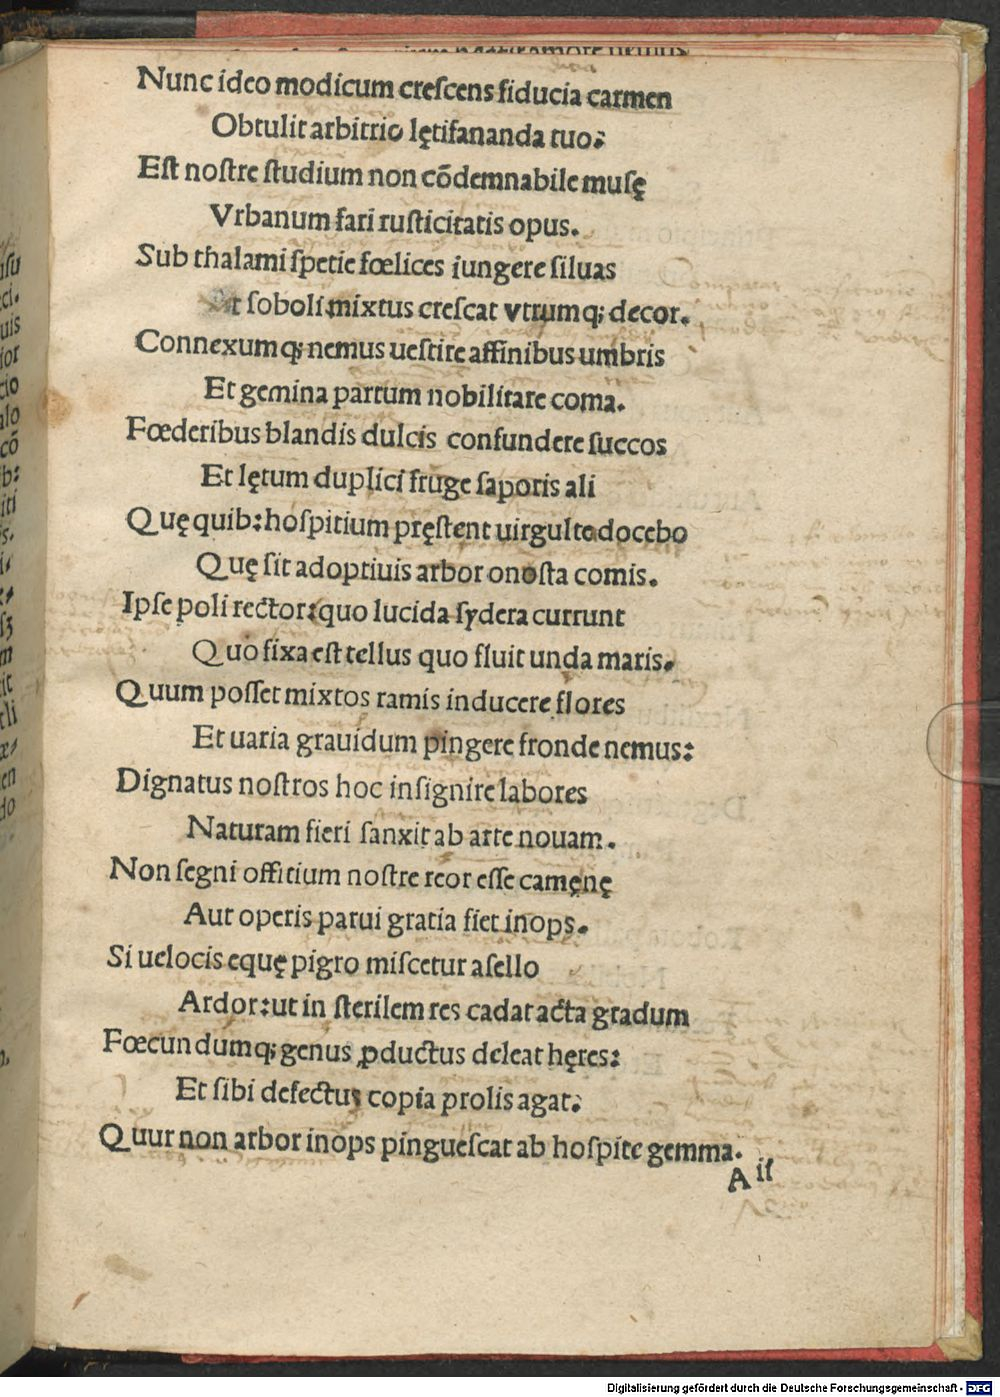 Nunc ideo modicum creſcens fiducia carmen
Obtulit arbitrio lętifananda tuo:
Eſt noſtre ſtudium non cõdemnabile muſę
Vrbanum fari ruſticitatis opus.
Sub thalami ſpetie fœlices iungere ſiluas
Et ſoboli mixtus creſcat vtrumq; decor.
Connexumq; nemus ueſtire affinibus umbris
Et gemina partum nobilitare coma.
Fœderibus blandis dulcis confundere ſuccos
Et lętum duplici fruge ſaporis ali
Quę quib: hoſpitium pręſtent uirgulta docebo
Quę ſit adoptiuis arbor onoſta comis.
Ipſe poli rector: quo lucida ſydera currunt
Quo fixa eſt tellus quo fluit unda maris.
Quum poſſet mixtos ramis inducere flores
Et uaria grauidum pingere fronde nemus:
Dignatus noſtros hoc inſignire labores
Naturam fieri ſanxit ab arte nouam.
Non ſegni offitium noſtre reor eſſe camęnę
Aut operis parui gratia fiet inops.
Si uelocis equę pigro miſcetur aſello
Ardor: ut in ſterilem res cadat acta gradum
Fœcundumq; genus ꝓductus deleat hęres:
Et ſibi defectus copia prolis agat:
Quur non arbor inops pingueſcat ab hoſpite gemma.
A ii
Digitalisierung gefördert durch die Deutsche Forschungsgemeinschaft - DFG